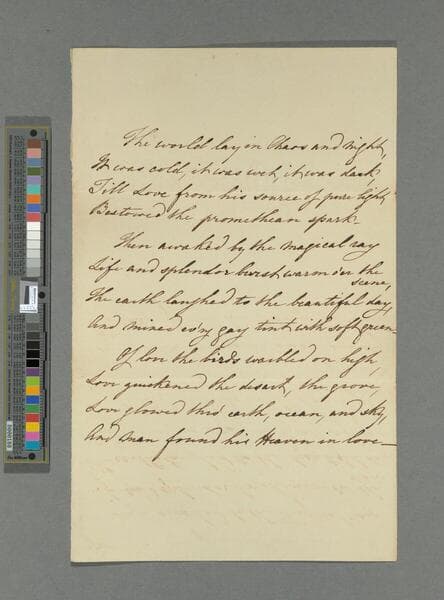 The world lay in Chaos and night,
It was cold, it was wet, it was dark
Till Love from his source of pure light
Bestowed the promethean spark-
Then awaked by the magical ray
Life and splendor burst warm o'er the
scene,
The earth laughed to the beautiful day,
And mixed ev'ry gay tint with soft green-
Of love the birds warbled on high
Love quickened the desart, the grove,
Love glowed thro' earth, ocean, and sky,
And man found his Heaven in love-